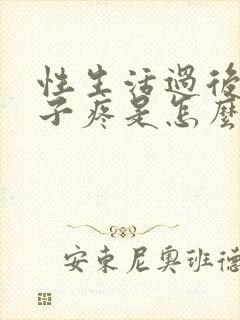 性生活過後
子疼是怎麼
安東尼奧班德